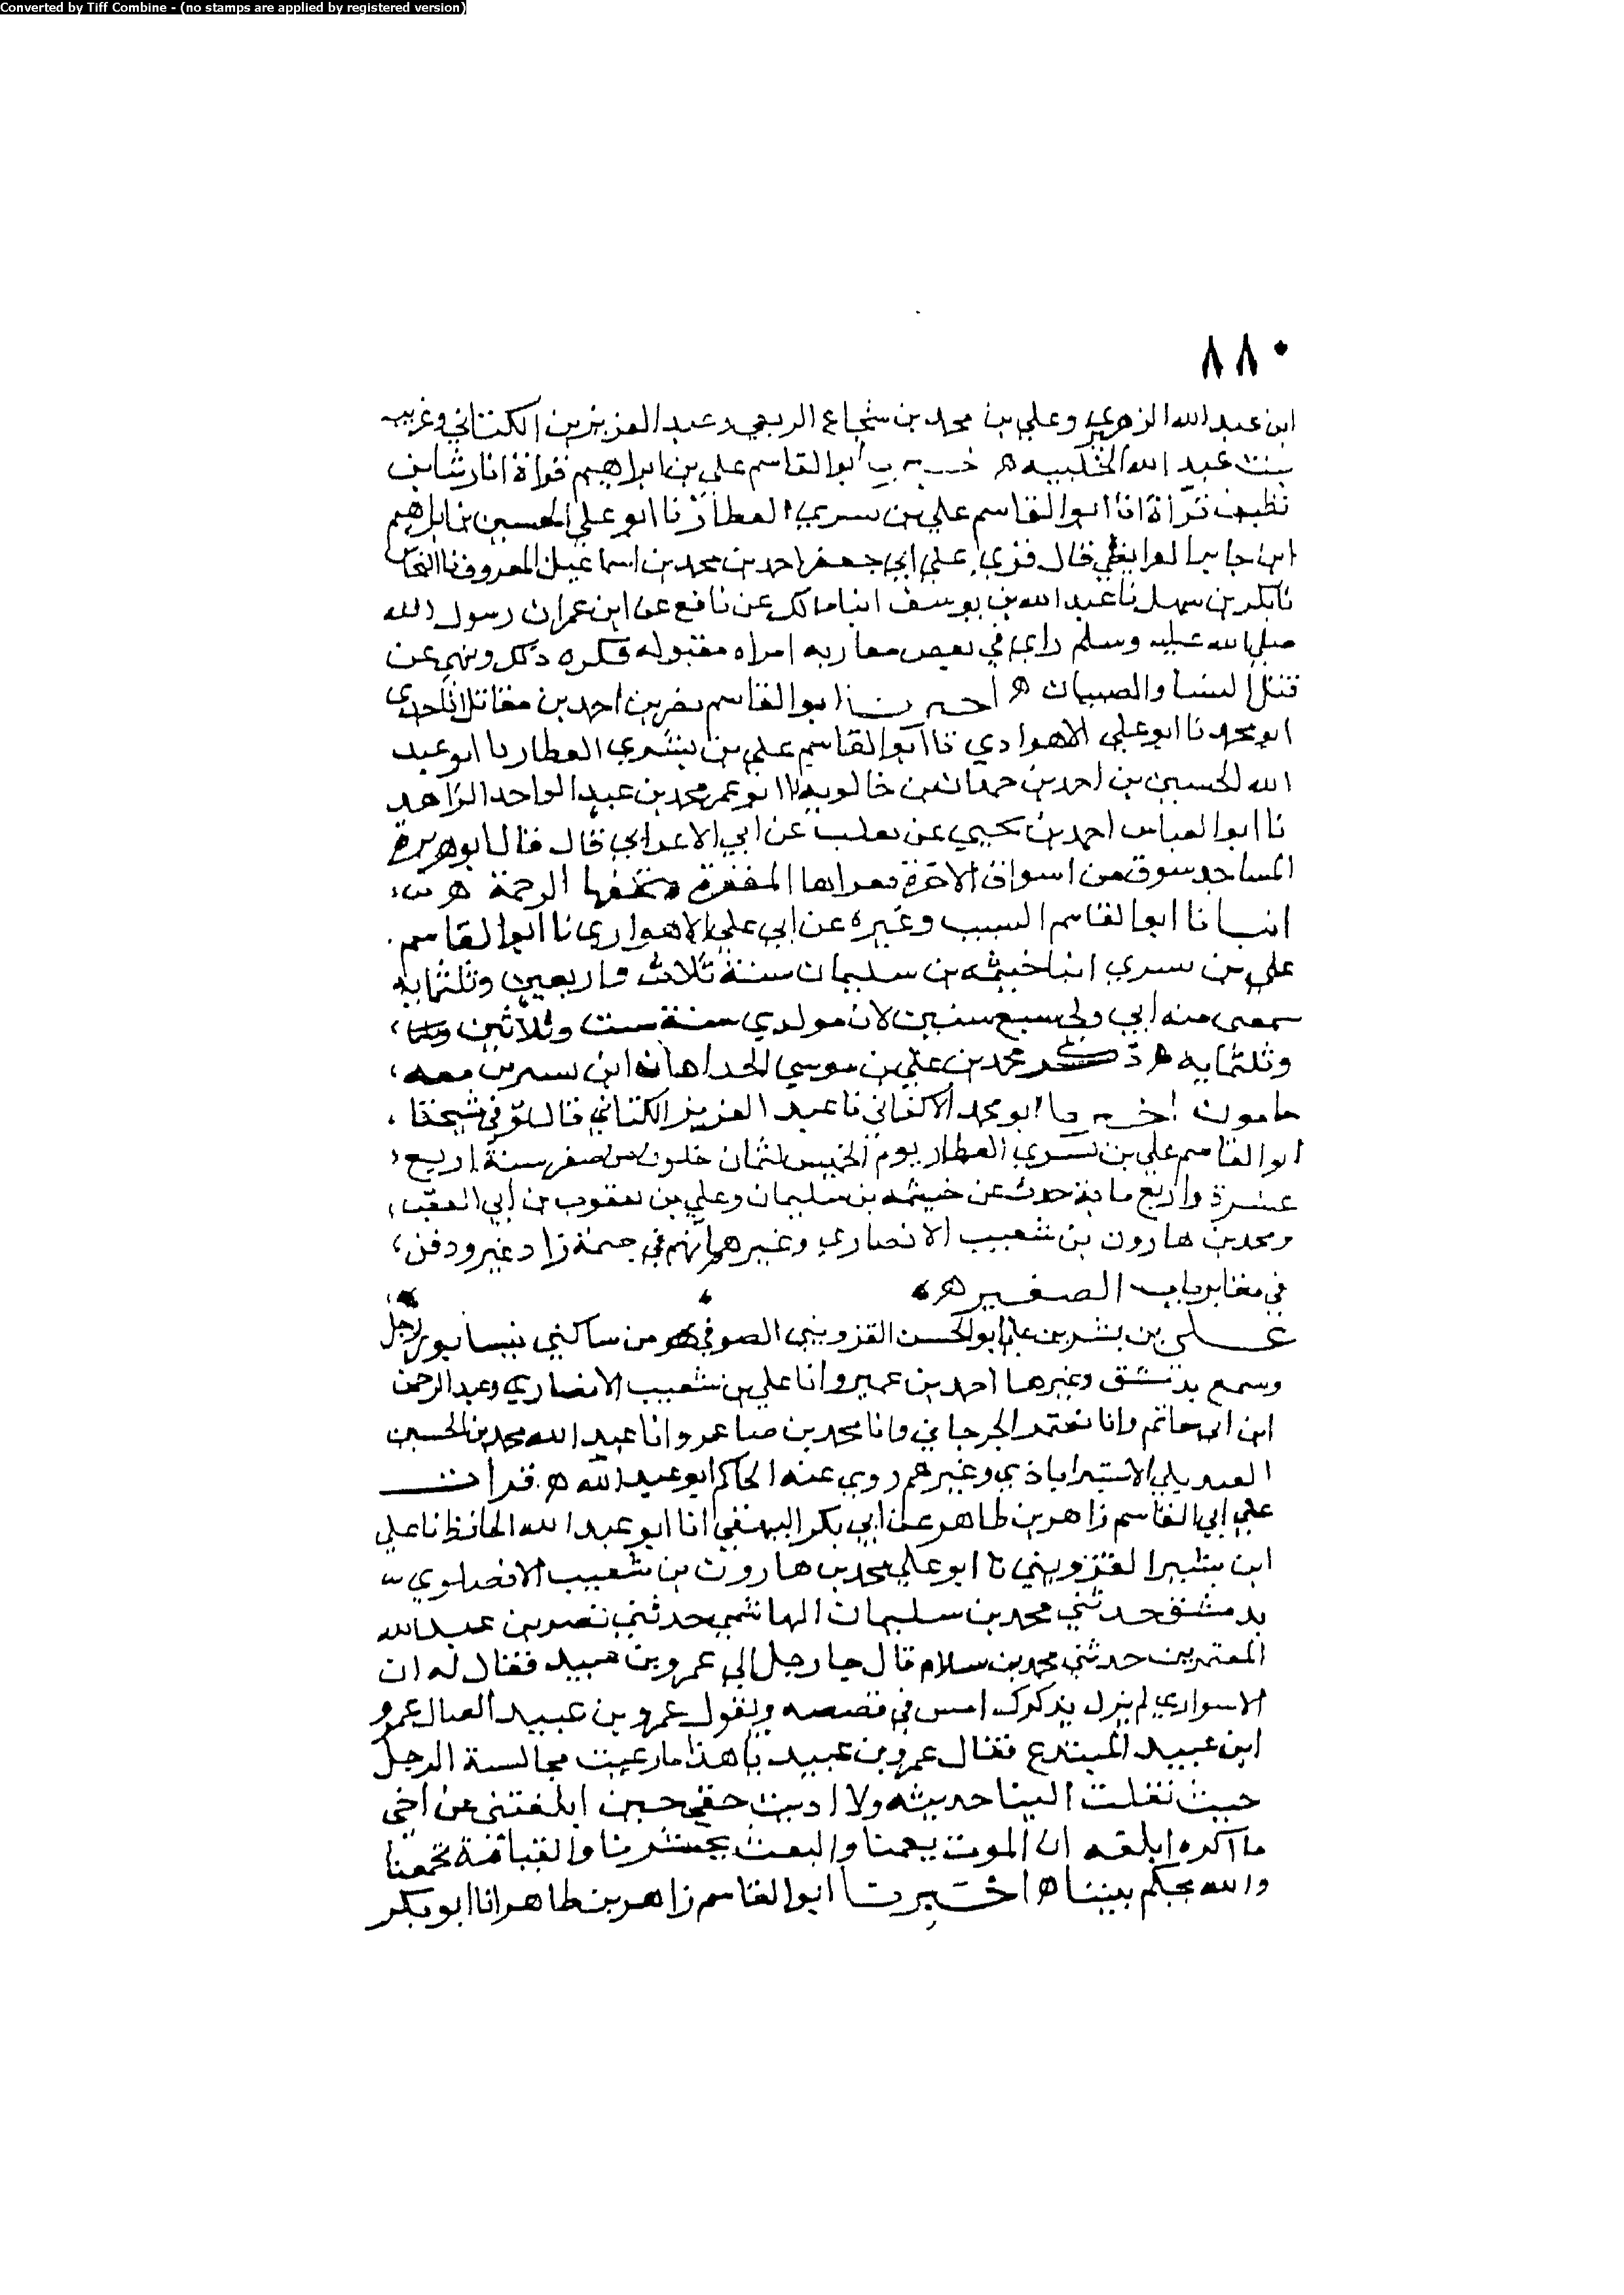 Converted by Tiff Combine - (no stamps are applied by registered version)
٨٨٠
ابن عبد الله الزهري وعلي بن محمد بن شجاع الربعي وعبد العزيز بن الكتاني وغريب
بنت عبد الله ابو القاسم علي بن ابراهيم قراة انا رشا بن
نظيف قراة انا ابو القاسم علي بن بسري العطار نا ابو علي الحسين بن ابراهيم
ابن جابر قال قري علي ابي جعفر احمد بن محمد بن اسماعيل المعروف
نا بكر بن سهل نا عبد الله بن يوسف انبا مالك عن نافع عن ابن عمر ان رسول الله
صلي الله عليه وسلم راي في بعض مغازيه امراه مقتوله فكره ذلك ونهي عن
قتل النسا والصبيان ه اخبرنا ابو القاسم نصر بن احمد بن مقاتل
ابو محمد نا ابو علي الاهوازي نا ابو القاسم علي بن بشري العطار نا ابو عبد
الله الحسين بن احمد بن حمدان بن خالويه نا ابو عمر محمد بن عبد الواحد الزاهد
نا ابو العباس احمد بن يحيي عن ثعلب عن ابي الاعرابي قال قال ابو هريرة
المساجد سوق من اسواق الاخرة المغفرة وتحفها الرحمة ه
انبانا ابو القاسم النسيب وغيره عن ابي علي الاهوازي نا ابو القاسم
علي بن بسري انبا خيثمه بن سليمان سنة ثلاث واربعين وثلثمايه
سمعني منه ابي ولي سبع سنين لان مولدي سنة ست وثلاثين
وثلثمايه ه ذكر محمد بن علي بن موسي الحداد ان ابن بسري
مامون اخبرنا ابو محمد الاكفاني نا عبد العزيز الكتاني قال توفي شيخنا
ابو القاسم علي بن بسري العطار يوم الخميس لثمان خلون من صفر سنة اربع
عشرة واربع ماية حدث عن خيثمه بن سليمان وعلي بن يعقوب بن ابي العقب
ومحمد بن هارون بن شعيب الانصاري وغيرهم ودفن
في مقابر باب الصغير ه
علي بن بشر بن علي ابو الحسن القزويني الصوفي هو من ساكني نيسابور رجل
وسمع بدمشق وغيرها احمد بن عمير وانا علي بن شعيب الانصاري وعبد الرحمن
ابن ابي حاتم وانا نعيم الجرجاني وانا محمد بن صاعد وانا عبد الله محمد بن الحسين
الاستراباذي وغيرهم روي عنه الحاكم ابو عبد الله ه قرات
علي ابي القاسم زاهر بن طاهر عن ابي بكر البيهقي انا ابو عبد الله الحافظ نا علي
ابن بشير القزويني نا ابو علي محمد بن هارون بن شعيب الانصاري
بدمشق حدثني محمد بن سليمان الهاشمي حدثني نصر بن عبد الله
حدثني محمد بن سلام قال جا رجل الي عمرو بن عبيد فقال له ان
الاسواري لم يزل يذكرك امس في قصصه ويقول عمرو بن عبيد الضال عمرو
ابن عبيد المبتدع فقال عمرو بن عبيد يا هذا ما رعيت مجالسة الرجل
حيث نقلت الينا حديثه ولا اديت حقي حين ابلغتني عن اخي
ما اكره ابلغه ان الموت يعمنا والبعث يحشرنا والقيامة تجمعنا
والله يحكم بيننا ه اخبرنا ابو القاسم زاهر بن طاهر انا ابو بكر